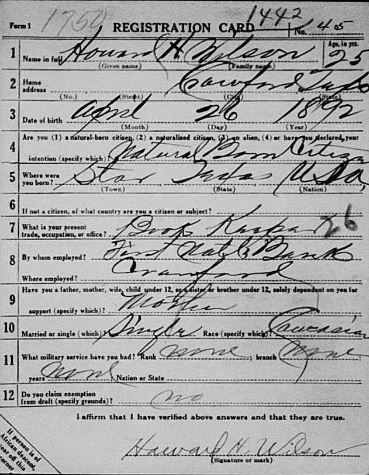 Form 1 1759 REGISTRATION CARD 1442 No. 405
1 Name in full Howard H. Wilson Age, in yrs. 25
(Given name) (Family name)
2 Home address Crawford Texas
(No.) (Street) (City) (State)
3 Date of birth April 26 1892
(Month) (Day) (Year)
4 Are you (1) a natural-born citizen, (2) a naturalized citizen, (3) an alien, (4) or have you declared your
intention (specify which)? Natural Born Citizen
5 Where were you born? Star Texas USA
(Town) (State) (Nation)
6 If not a citizen, of what country are you a citizen or subject?
7 What is your present trade, occupation, or office? Book Keeper 26
8 By whom employed? First Natl Bank
Where employed? Crawford
9 Have you a father, mother, wife, child under 12, or a sister or brother under 12, solely dependent on you for
support (specify which)? Mother
10 Married or single (which)? Single Race (specify which)? Caucasian
11 What military service have you had? Rank none ; branch None
years None Nation or State
12 Do you claim exemption from draft (specify grounds)? no
I affirm that I have verified above answers and that they are true.
Howard H. Wilson
(Signature or mark)
If person is of
African descent,
tear off this
corner